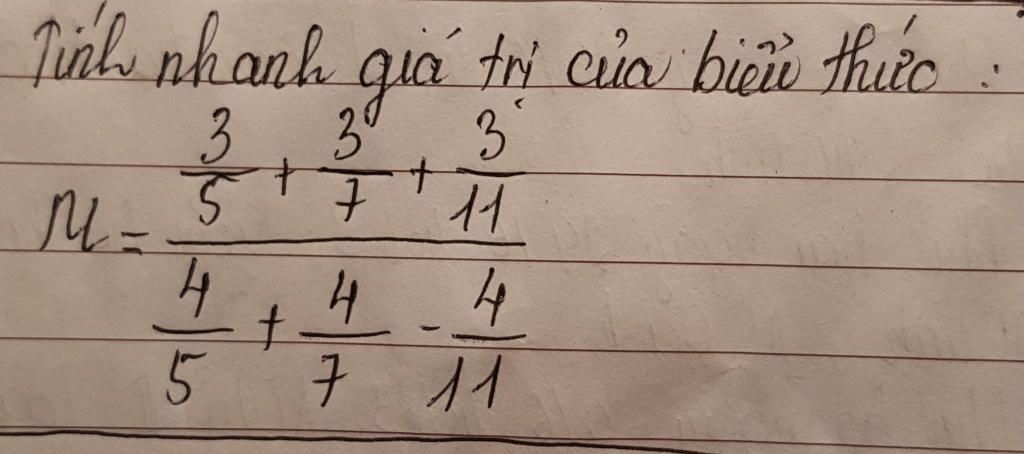 Tính nhanh giá trị của biểu thức :
3/5 + 3/7 + 3/11
M = ―
4/5 + 4/7 - 4/11